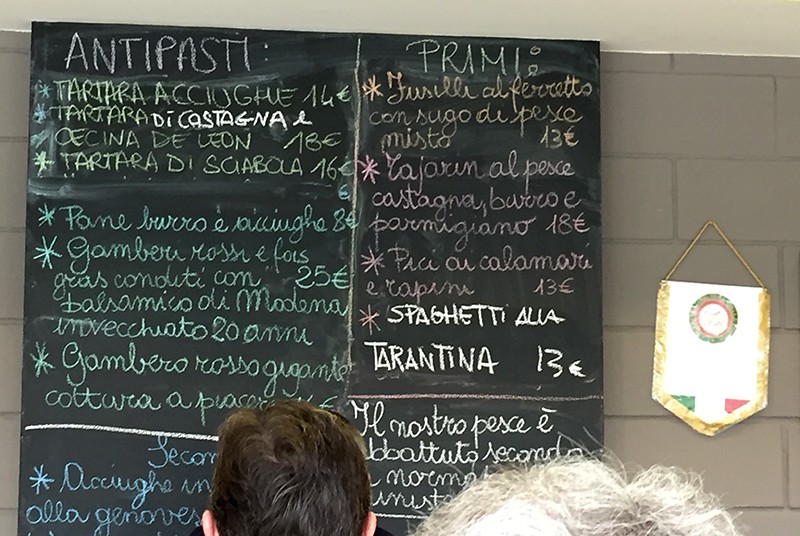 ANTIPASTI:
* TARTARA ACCIUGHE 14€
* TARTARA DI CASTAGNA e
CECINA DE LEON 18€
* TARTARA DI SCIABOLA 16€
€
* Pane burro e acciughe 8€
* Gamberi rossi e fois
gras conditi con 25€
balsamico di Modena
invecchiato 20 anni
* Gambero rosso gigante
cottura a piacere €
* Acciughe in
alla genovese
PRIMI:
* Fusilli al ferretto
con sugo di pesce
misto 13€
* Tajarin al pesce
castagna, burro e
parmigiano 18€
* Pici ai calamari
e rapini 13€
* SPAGHETTI ALLA
TARANTINA 13€
Il nostro pesce è
abbattuto secondo
normat